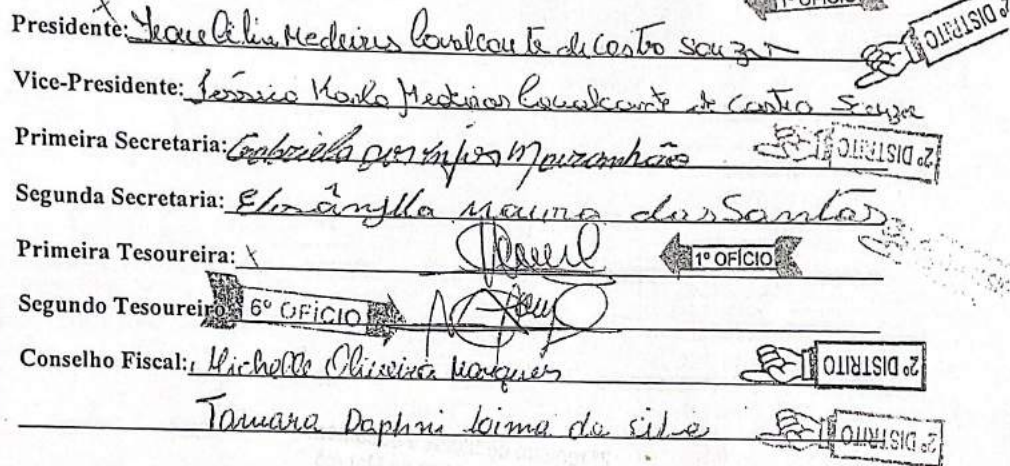 1º OFÍCIO
2º DISTRITO
Presidente: Medeiros Cavalcante de Castro Souza
Vice-Presidente: Karla Medeiros Cavalcante de Castro Souza
Primeira Secretaria: Gabriela Maranhão 2º DISTRITO
Segunda Secretaria: Elisângella Moura dos Santos
Primeira Tesoureira: 1º OFÍCIO
Segundo Tesoureiro: 6º OFÍCIO
Conselho Fiscal: Michelle Oliveira Marques 2º DISTRITO
Tamara Daphni Lima da Silva 2º DISTRITO